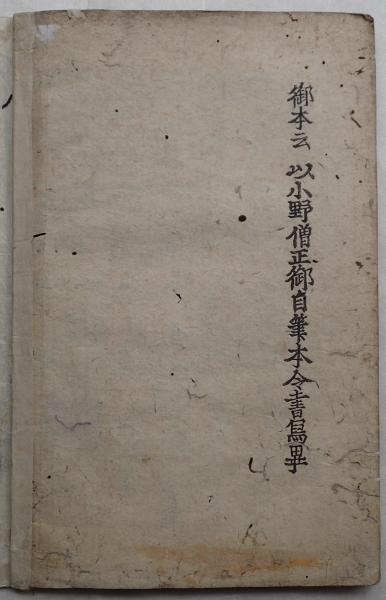 御本云 以小野僧正御自筆本令書寫畢